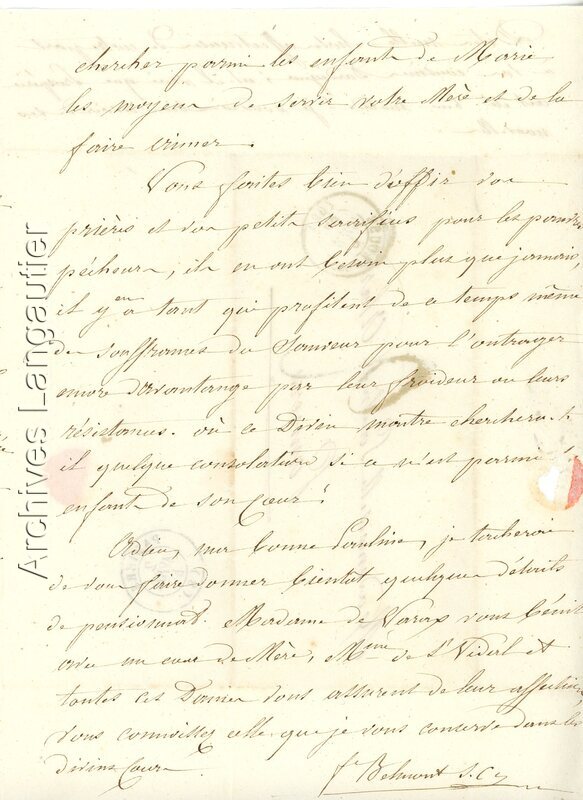 chercher parmi les enfants de Marie
les moyens de servir votre Mère et de la
faire aimer.
Vous faites bien d'offrir vos
prières et vos petits sacrifices pour les pauvres
pécheurs, ils en ont besoin plus que jamais,
il y en a tant qui profitent de ce temps même
des souffrances du Sauveur pour l'outrager
encore davantage par leur froideur ou leurs
résistances. où ce Divin maitre cherchera-t-
il quelque consolation si ce n'est parmi les
enfants de son Cœur?
Adieu, ma bonne Pauline, je tacherai
de vous faire donner bientot quelques détails
de pensionnat. Madame de Varax vous bénit
avec un cœur de Mère, Mme de St Vidal et
toutes ces Dames vous assurent de leur affection,
vous connaissez celle que je vous conserve dans les
divins Cœurs
Belmont S. C.
Archives Langautier